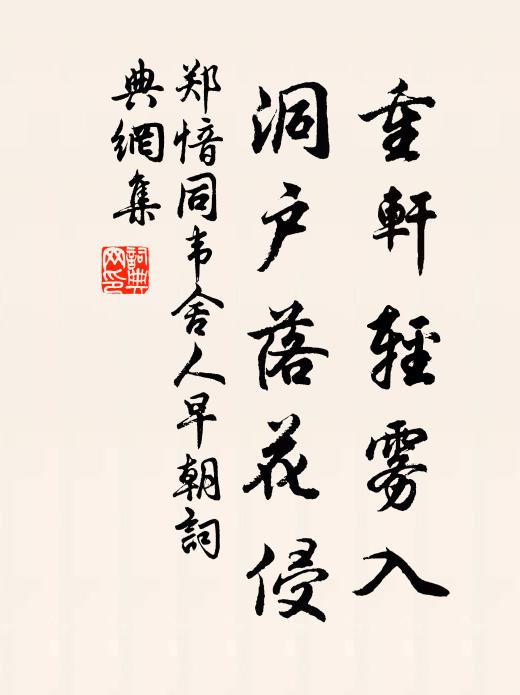 重軒輕雾入
洞户落花侵
郑愔同韦舍人早朝詞
典網集
詞典网印